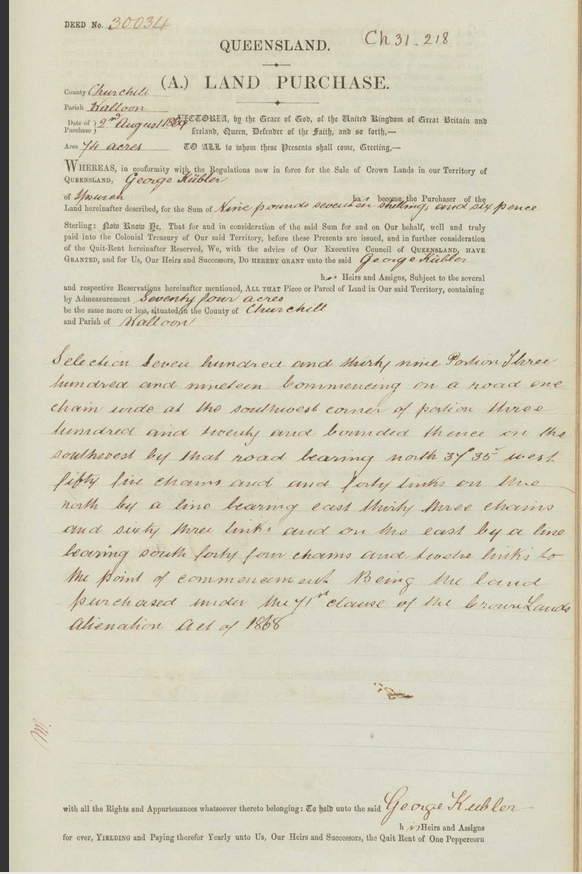 DEED No. 30034
Ch 31-218
QUEENSLAND.
(A.) LAND PURCHASE.
County Churchill
Parish Walloon
Date of Purchase } 2nd August 1869
Area 74 acres
VICTORIA, by the Grace of God, of the United Kingdom of Great Britain and
Ireland, Queen, Defender of the Faith, and so forth,—
TO ALL to whom these Presents shall come, Greeting,—
WHEREAS, in conformity with the Regulations now in force for the Sale of Crown Lands in our Territory of
QUEENSLAND, George Kübler
of Ipswich has become the Purchaser of the
Land hereinafter described, for the Sum of Nine pounds seventeen shillings and six pence
Sterling: Now Know Ye, That for and in consideration of the said Sum for and on Our behalf, well and truly
paid into the Colonial Treasury of Our said Territory, before these Presents are issued, and in further consideration
of the Quit-Rent hereinafter Reserved, We, with the advice of Our Executive Council of QUEENSLAND, HAVE
GRANTED, and for Us, Our Heirs and Successors, DO HEREBY GRANT unto the said George Kübler
his Heirs and Assigns, Subject to the several
and respective Reservations hereinafter mentioned, ALL THAT Piece or Parcel of Land in Our said Territory, containing
by Admeasurement Seventy four acres
be the same more or less, situated in the County of Churchill
and Parish of Walloon
Selection Seven hundred and thirty nine Portion Three
hundred and nineteen Commencing on a road one
chain wide at the southwest corner of portion three
hundred and twenty and bounded thence on the
southwest by that road bearing north 37° 35' west
fifty five chains and and forty links on the
north by a line bearing east thirty three chains
and sixty three links and on the east by a line
bearing south forty four chains and twelve links to
the point of commencement Being the land
purchased under the 71st clause of the Crown Lands
Alienation Act of 1868
with all the Rights and Appurtenances whatsoever thereto belonging: To hold unto the said George Kübler
his Heirs and Assigns
for ever, YIELDING and Paying therefor Yearly unto Us, Our Heirs and Successors, the Quit Rent of One Peppercorn